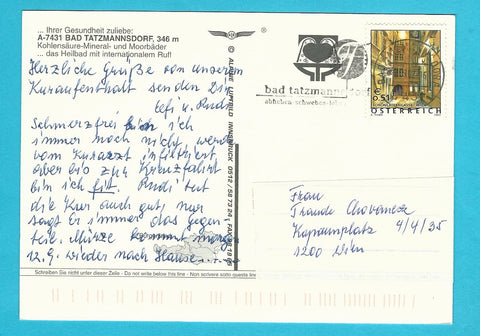 ... Ihrer Gesundheit zuliebe:
A-7431 BAD TATZMANNSDORF, 346 m
Kohlensäure-Mineral- und Moorbäder
... das Heilbad mit internationalem Ruf!
Herzliche Grüße von unserem
Kuraufenthalt senden Dir
Lefi u. Rudi
Schmerzfrei bin ich
immer noch nicht, werde
vom Kurarzt infiltriert,
aber bis zur Kreuzfahrt
bin ich fit. Rudi tut
die Kur auch gut, nur
sagt Er immer das Gegen-
teil.
12.9. wieder nach Hause
Schreiben Sie nicht unter dieser Zeile - Do not write below this line - Non scrivere sotto questa linea
© ALPINE LUFTBILD INNSBRUCK
bad tatzmannsdorf
ÖSTERREICH
Frau
Traude
Kapaunplatz 4/4/35
1200 Wien